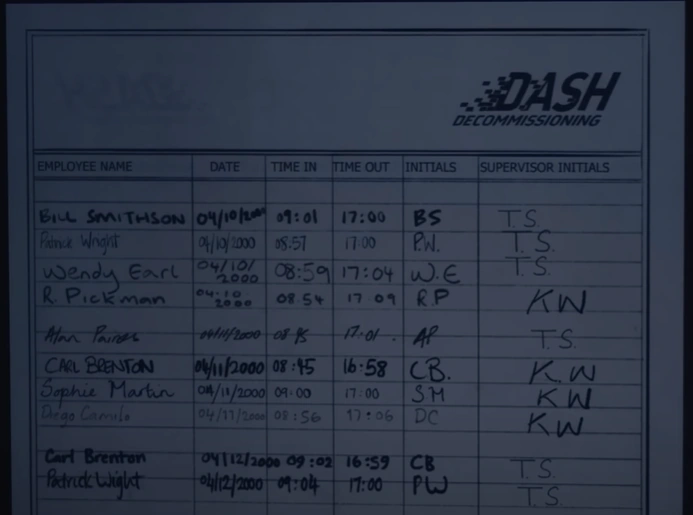 DASH
DECOMMISSIONING
EMPLOYEE NAME DATE TIME IN TIME OUT INITIALS SUPERVISOR INITIALS
BILL SMITHSON 04/10/2000 09:01 17:00 BS T.S.
Patrick Wright 04/10/2000 08:57 17:00 P.W. T.S.
Wendy Earl 04/10/2000 08:59 17:04 W.E T.S.
R. Pickman 04-10 2000 08 54 17 09 R.P KW
Alan 04/11/2000 17:01. AP T.S.
CARL BRENTON 04/11/2000 08:45 16:58 CB. KW
Sophie Martin 04/11/2000 09:00 17:00 SM KW
Diego Camilo 04/11/2000 08:56 17:06 DC KW
Carl Brenton 04/12/2000 09:02 16:59 CB T.S.
Patrick Wight 04/12/2000 09:04 17:00 PW T.S.